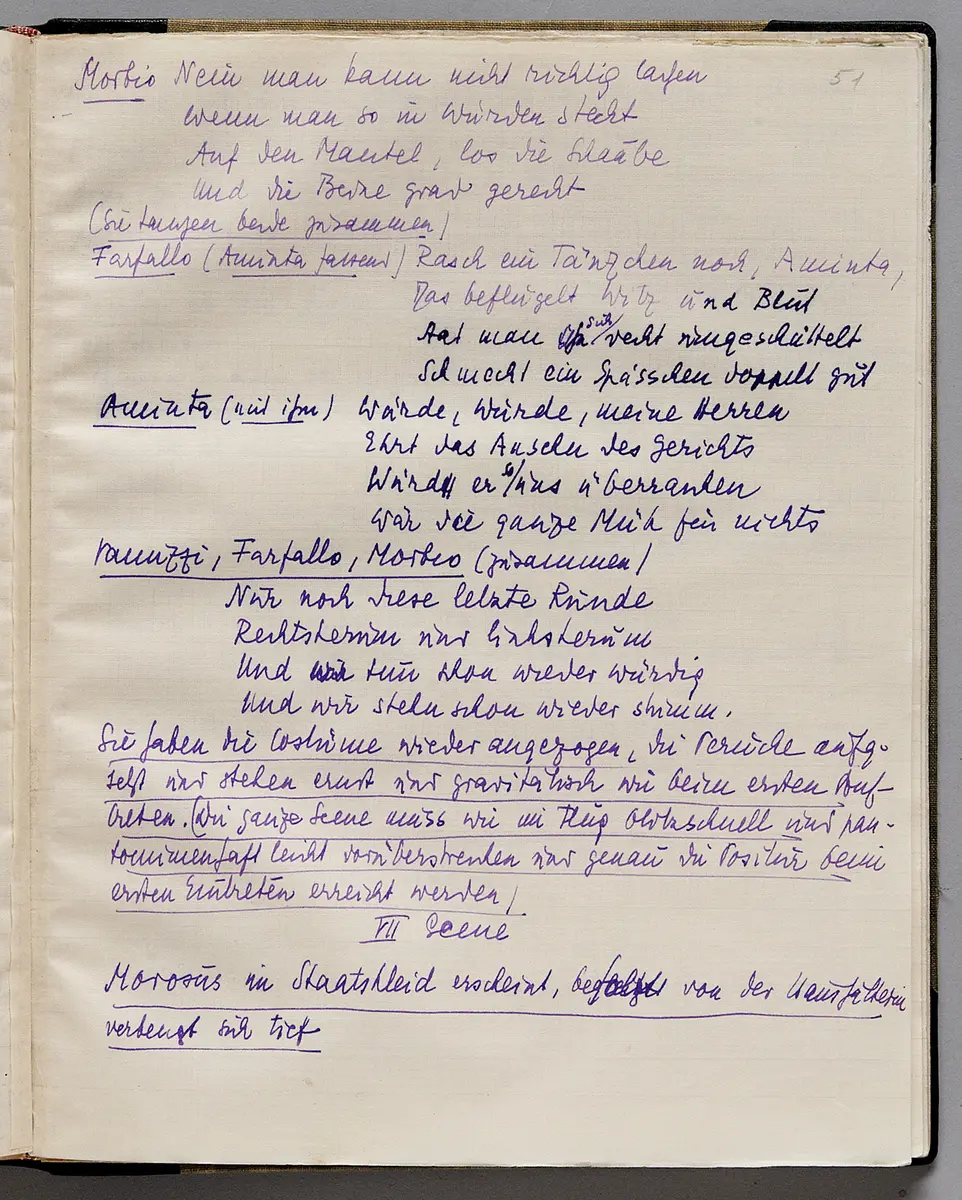 51
Morbio Nein man kann nicht richtig lachen
Wenn man so in Würden steckt
Auf den Mantel, los die Schaube
Und die Beine grad gereckt
(Sie tanzen beide zusammen)
Farfallo (Aminta fassend) Rasch ein Tänzchen noch, Aminta,
Das beflügelt Witz und Blut
Hat man sich recht umgeschüttelt
Schmeckt ein Spässchen doppelt gut
Aminta (mit ihm) Würde, Würde, meine Herren
Ehrt das Ansehn des Gerichts
Würd er so uns überranden
Wär die ganze Müh für nichts
Vanuzzi, Farfallo, Morbio (zusammen)
Nur noch diese letzte Runde
Rechtsherum und linksherum
Und wir tun schon wieder würdig
Und wir stehn schon wieder stumm.
Sie haben die Costüme wieder angezogen, die Perücke aufge-
setzt und stehen ernst und gravitätisch wie beim ersten Auf-
treten. (Die ganze Scene muss wie im Flug blitzschnell und pan-
tomimenhaft leicht vorüberstreichen und genau die Positur beim
ersten Eintreten erreicht werden)
VII Scene
Morosus im Staatskleid erscheint, von der Haushälterin
verbeugt sich tief